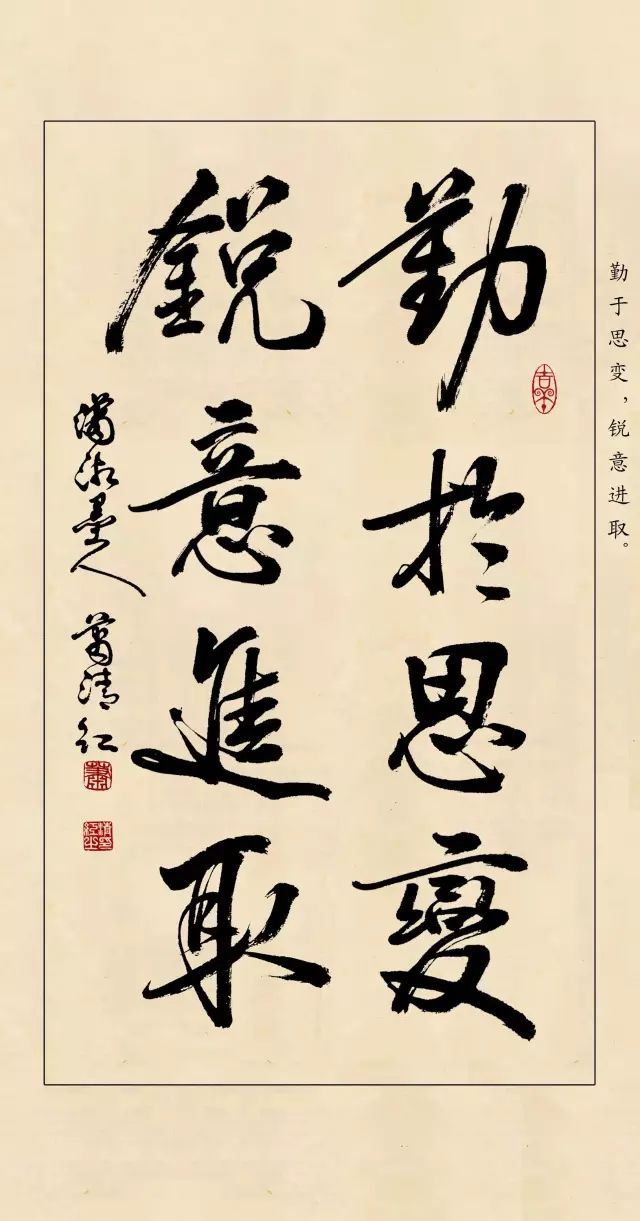 勤于思变，锐意进取。
勤於思變
銳意進取
瀟湘墨人 蕭清紅